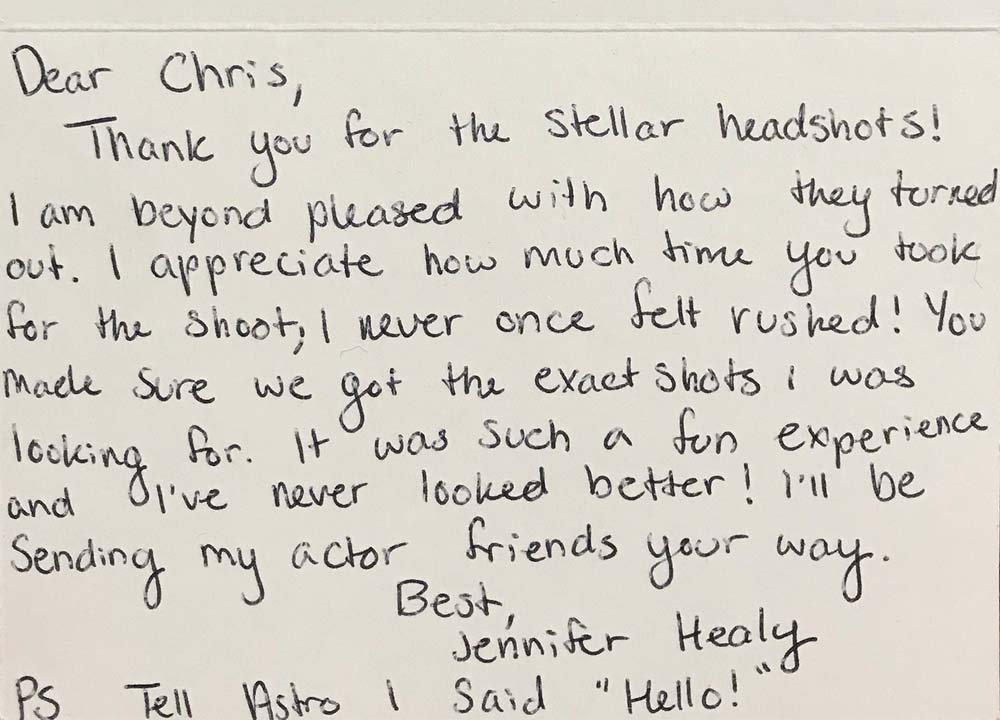 Dear Chris,
Thank you for the stellar headshots!
I am beyond pleased with how they turned
out. I appreciate how much time you took
for the shoot, I never once felt rushed! You
made sure we got the exact shots I was
looking for. It was such a fun experience
and I've never looked better! I'll be
sending my actor friends your way.
Best,
Jennifer Healy
PS Tell Astro I said "Hello!"